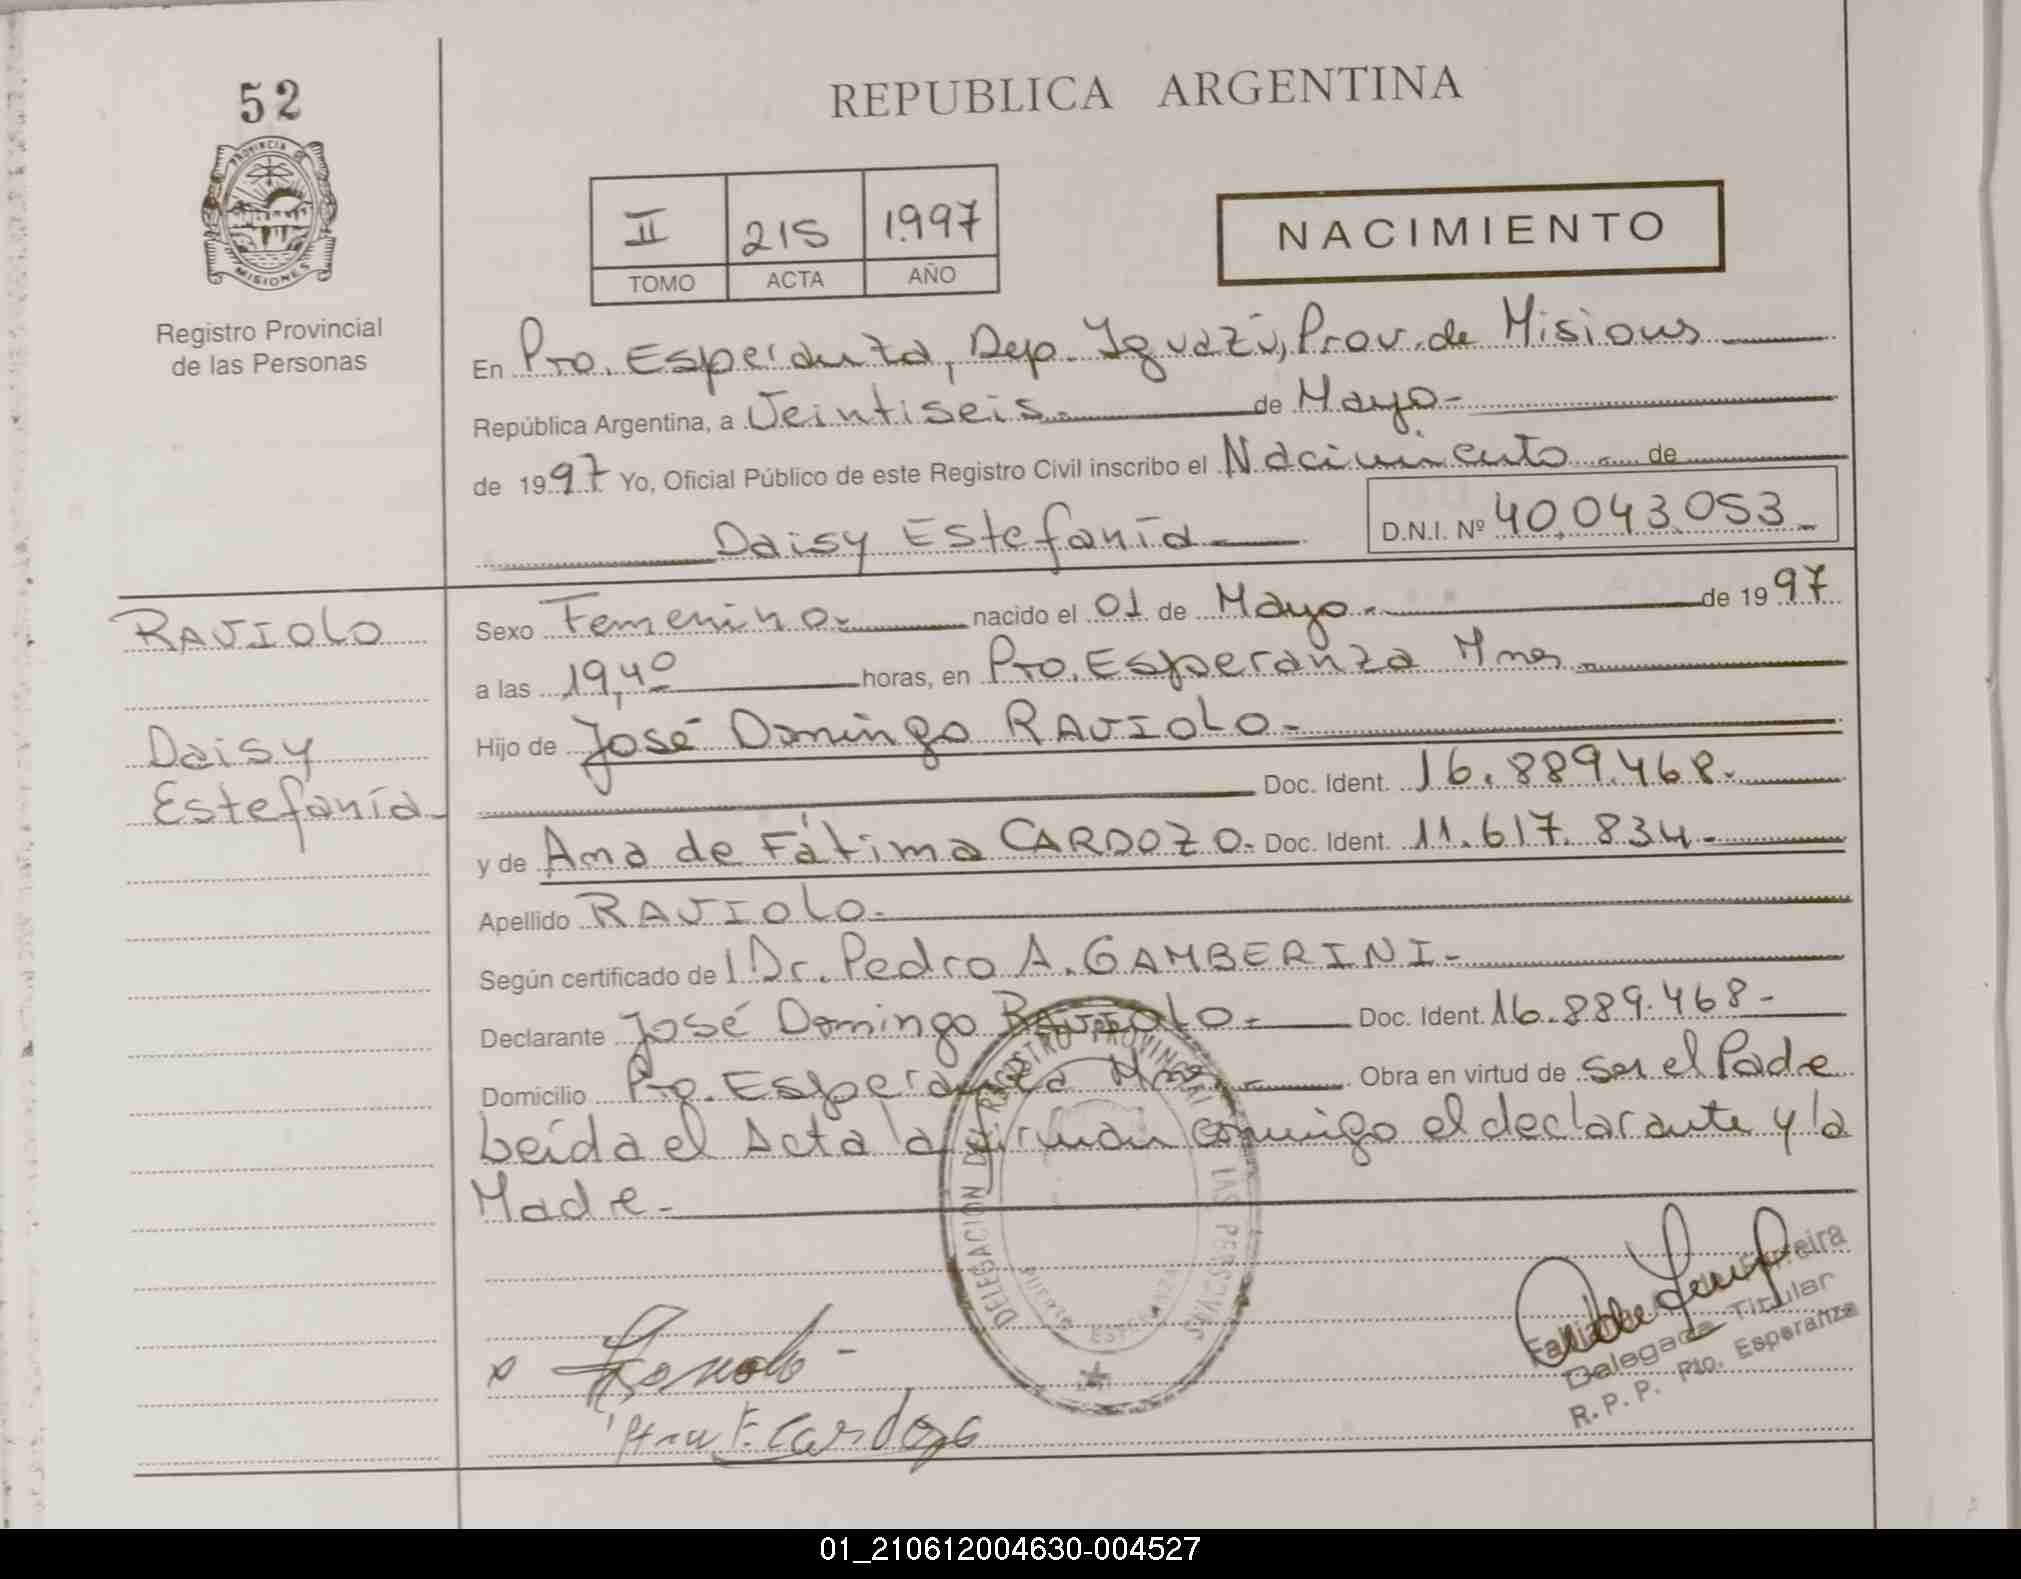 52
PROVINCIA DE
MISIONES
Registro Provincial
de las Personas
REPUBLICA ARGENTINA
II 215 1.997
TOMO ACTA AÑO
NACIMIENTO
En Pto. Esperanza, Dep. Iguazú, Prov. de Misiones
República Argentina, a Veintiseis.- de Mayo-
de 1997 Yo, Oficial Público de este Registro Civil inscribo el Nacimiento de
Daisy Estefanía - D.N.I. Nº 40.043.053 -
RAVIOLO
Daisy
Estefanía-
Sexo Femenino- nacido el 01 de Mayo.- de 1997
a las 19,40 horas, en Pto. Esperanza Mnes -
Hijo de José Domingo RAVIOLO-
Doc. Ident. 16.889.468-
y de Ana de Fátima CARDOZO- Doc. Ident. 11.617.834-
Apellido RAVIOLO-
Según certificado de l Dr. Pedro A. GAMBERINI-
Declarante José Domingo RAVIOLO- Doc. Ident. 16.889.468-
Domicilio Pto. Esperanza Mnes- Obra en virtud de ser el Padre
Leída el Acta la firman conmigo el declarante y la
Madre-
DELEGACION DEL REGISTRO PROVINCIAL DE LAS PERSONAS
PUERTO ESPERANZA
Ferreira
Delegada Titular
R. P. P. Pto. Esperanza
Ana F. Cardozo
01_210612004630-004527